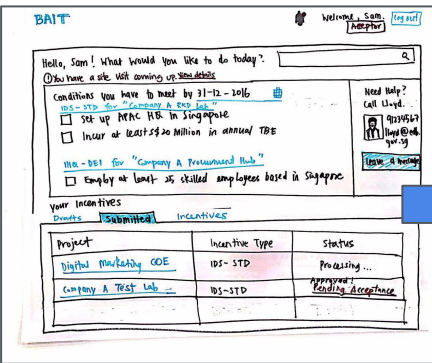 BAIT
Welcome, Sam. Log out
Acceptor
Hello, Sam! What would you like to do today?
You have a site visit coming up. View details
Conditions you have to meet by 31-12-2016
IDS-STD for "Company A R&D Lab"
Set up APAC HQ in Singapore
Incur at least S$20 Million in annual TBE
IHQ-DEI for "Company A Procurement Hub"
Employ at least 25 skilled employees based in Singapore
Need Help?
Call Lloyd.
91234567
lloyd@edb.
gov.sg
Leave a message
Your Incentives
Drafts Submitted Incentives
Project Incentive Type Status
Digital Marketing COE IDS-STD Processing...
Company A Test Lab IDS-STD Approved!
Pending Acceptance